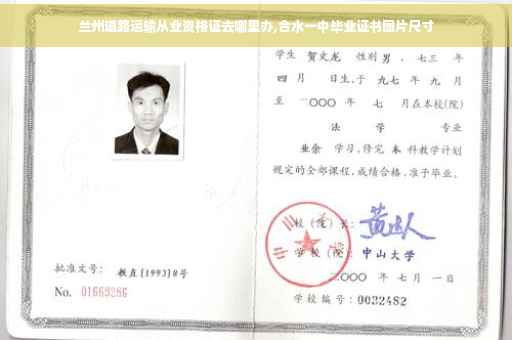 兰州道路运输从业资格证去哪里办,合水一中毕业证书图片尺寸
学生 贺文龙 性别 男 、七三 年
四 月 日生,于 九七 年 九 月
至 二〇〇〇 年 七 月在本校(院)
法 学 专业
业余 学习,修完 本 科教学计划
规定的全部课程,成绩合格,准予毕业。
校 (院) 长:
学 校 (院): 中山大学
二〇〇〇 年 七 月 一 日
学校编号: 0032482
批准文号: 教直[1993]8号
No. 01663286